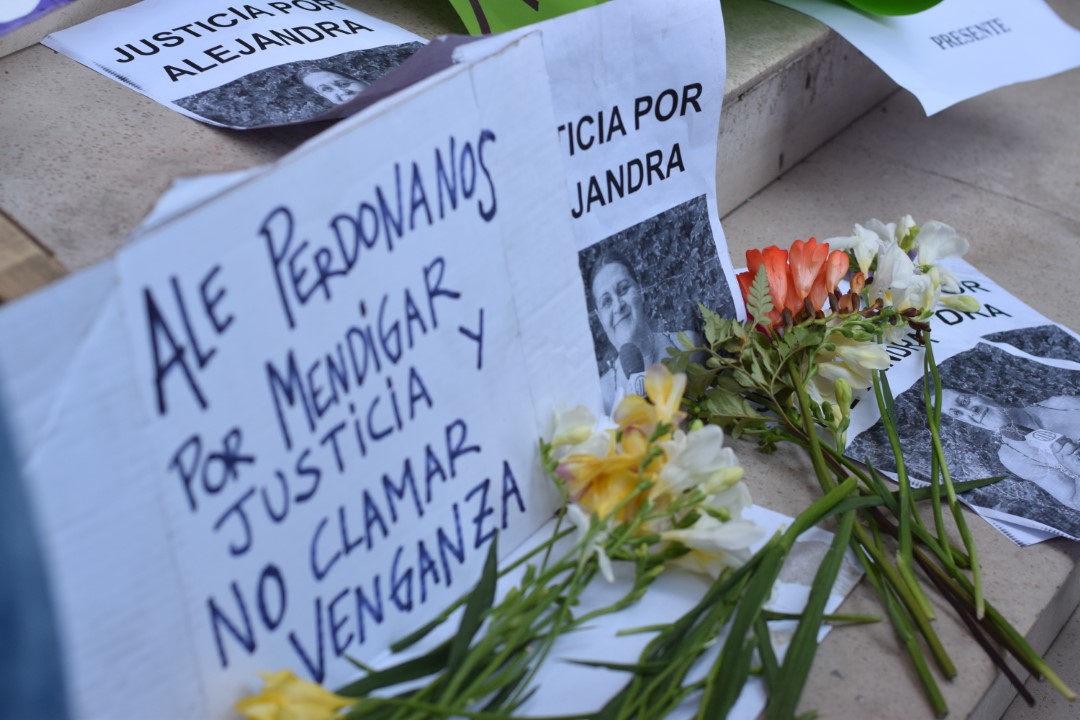 JUSTICIA POR
ALEJANDRA
PRESENTE
TICIA POR
JANDRA
ALE PERDONANOS
POR MENDIGAR
JUSTICIA Y
NO CLAMAR
VENGANZA
OR
NDRA